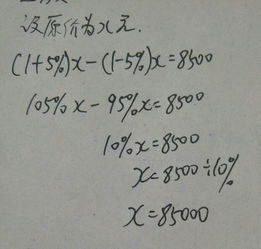 设原价为x元.
(1+5%)x-(1-5%)x=8500
105%x-95%x=8500
10%x=8500
x=8500÷10%
x=85000